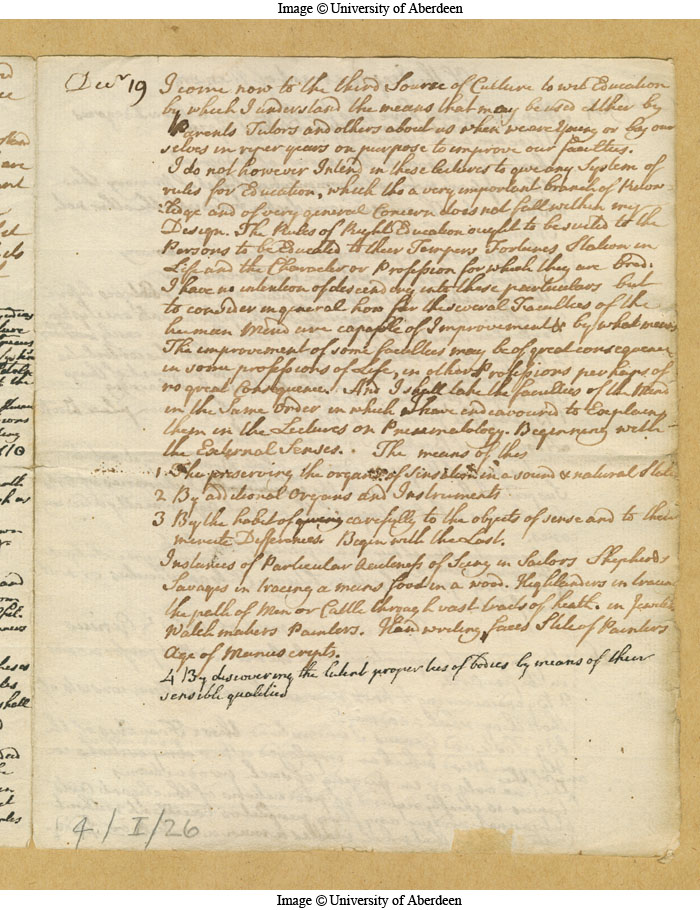 Image © University of Aberdeen
Decr 19 I come now to the third Source of Culture to wit Education
by which I understand the means that may be used either by
Parents Tutors and others about us when we are Young or by our
selves in riper years on purpose to improve our faculties.
I do not however Intend in these lectures to give any System of
rules for Education, which tho a very important branch of Know
:ledge and of very general Concern does not fall within my
Design. The Rules of Right Education ought to be suited to the
Persons to be Educated to their Tempers Fortunes Station in
Life and the Character or Profession for which they are bred.
I have no intention of descending into these particulars but
to consider in general how far the several Faculties of the
human Mind are capable of Improvement & by what means
The improvement of some faculties may be of great consequence
in some professions of Life, in other Professions perhaps of
no great Consequence. And I shall take the faculties of the Mind
in the Same order in which I have endeavoured to Explain
them in the Lectures on Pneumatology. Beginning with
the External Senses. The means of this
1 The preserving the organs of Sensation in a sound & natural State
2 By additional Organs and Instruments
3 By the habit of carefully to the objects of sense and to their
minute Differences. Begin with the Last.
Instances of Particular Acuteness of Seeing in Sailors Shepherds
Savages in tracing a mans food in a wood. Highlanders in tracing
the path of Men or Cattle through vast tracts of heath. in Jewellers
Watchmakers Painters. Handwriting, faces Stile of Painters
Age of Manuscripts.
4 By discovering the latent properties of bodies by means of their
sensible qualities
4/I/26
Image © University of Aberdeen